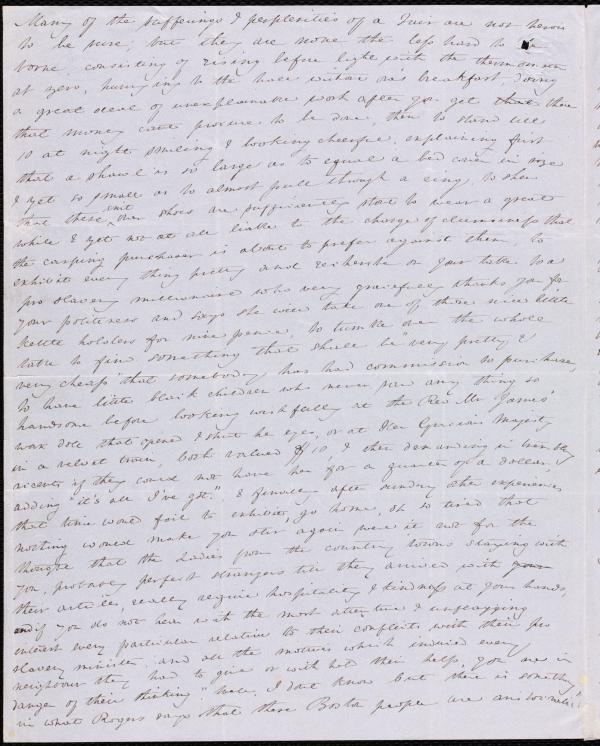 Many of the sufferings & perplexities of a Fair are not heroic
to be sure, but they are none the less hard to be
borne, consisting of rising before light with the thermometer
at zero, hurrying to the hall without one's breakfast, doing
a great deal of unexplainable work after you get there
that money cant procure to be done, then to stand till
10 at night smiling & looking cheerful, explaining first
that a shawl is so large as to equal a bed cover in size
& yet so small as to almost pull through a ring, to show
that these over shoes are sufficiently stout to wear a great
while & yet not at all liable to the charge of clumsiness that
the carping purchaser is about to prefer against them, to
exhibit every thing pretty and recherche on your table to a
pro slavery millionaire who very gracefully thanks you for
your politeness and says she will take one of those nice little
kettle holders for nine pence, to tumble over the whole
table to find something that shall be very pretty &
very cheap that somebody has had commission to purchase,
to have little black children who never saw any thing so
handsome before looking wishfully at the Rev. Mr James'
wax doll that opened & shut her eyes, or at Her Gracious Majesty
in a velvet train, both valued $10, & then demanding in trembling
accents if they could not have her for a quarter of a dollar,
adding "it's all I've got." & finally after sundry other experiences
that time would fail to exhibit, go home, oh so tired that
nothing would make you stir again were it not for the
thought that the Ladies from the country towns staying with
you, probably perfect strangers till they arrived with
their articles, really require hospitality & kindness at your hands,
and if you do not hear with the most attentive & unflagging
interest every particular relative to their conflicts with their pro
slavery minister, and all the motives which induced every
neighbour they had to give or with hold their help, you are in
danger of their thinking "well, I dont know but there is something
in what Rogers says that these Boston people are aristocratic"